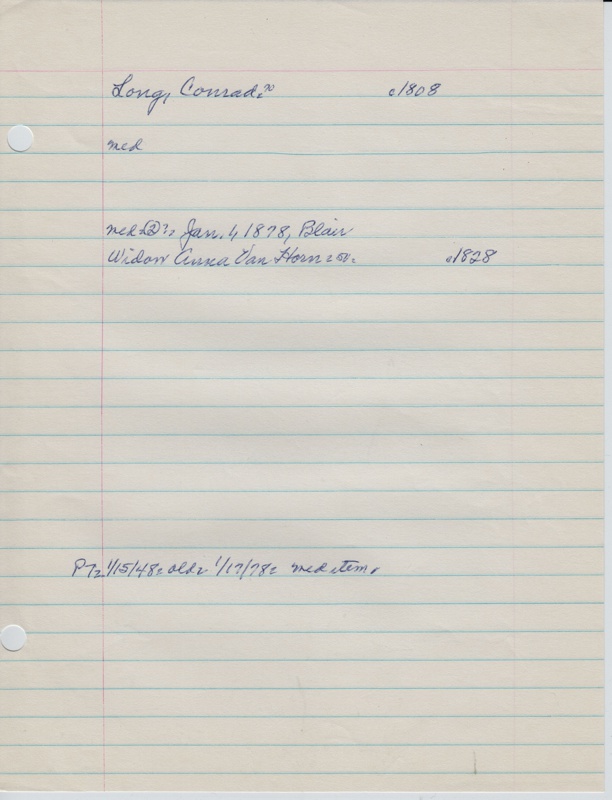 Long, Conrad: 70 c1808
med
med (2?): Jan. 4, 1878, Blair
Widow Anna Van Horn: 50: c1828
P7: 1/15/48: old: 1/17/78: med item.